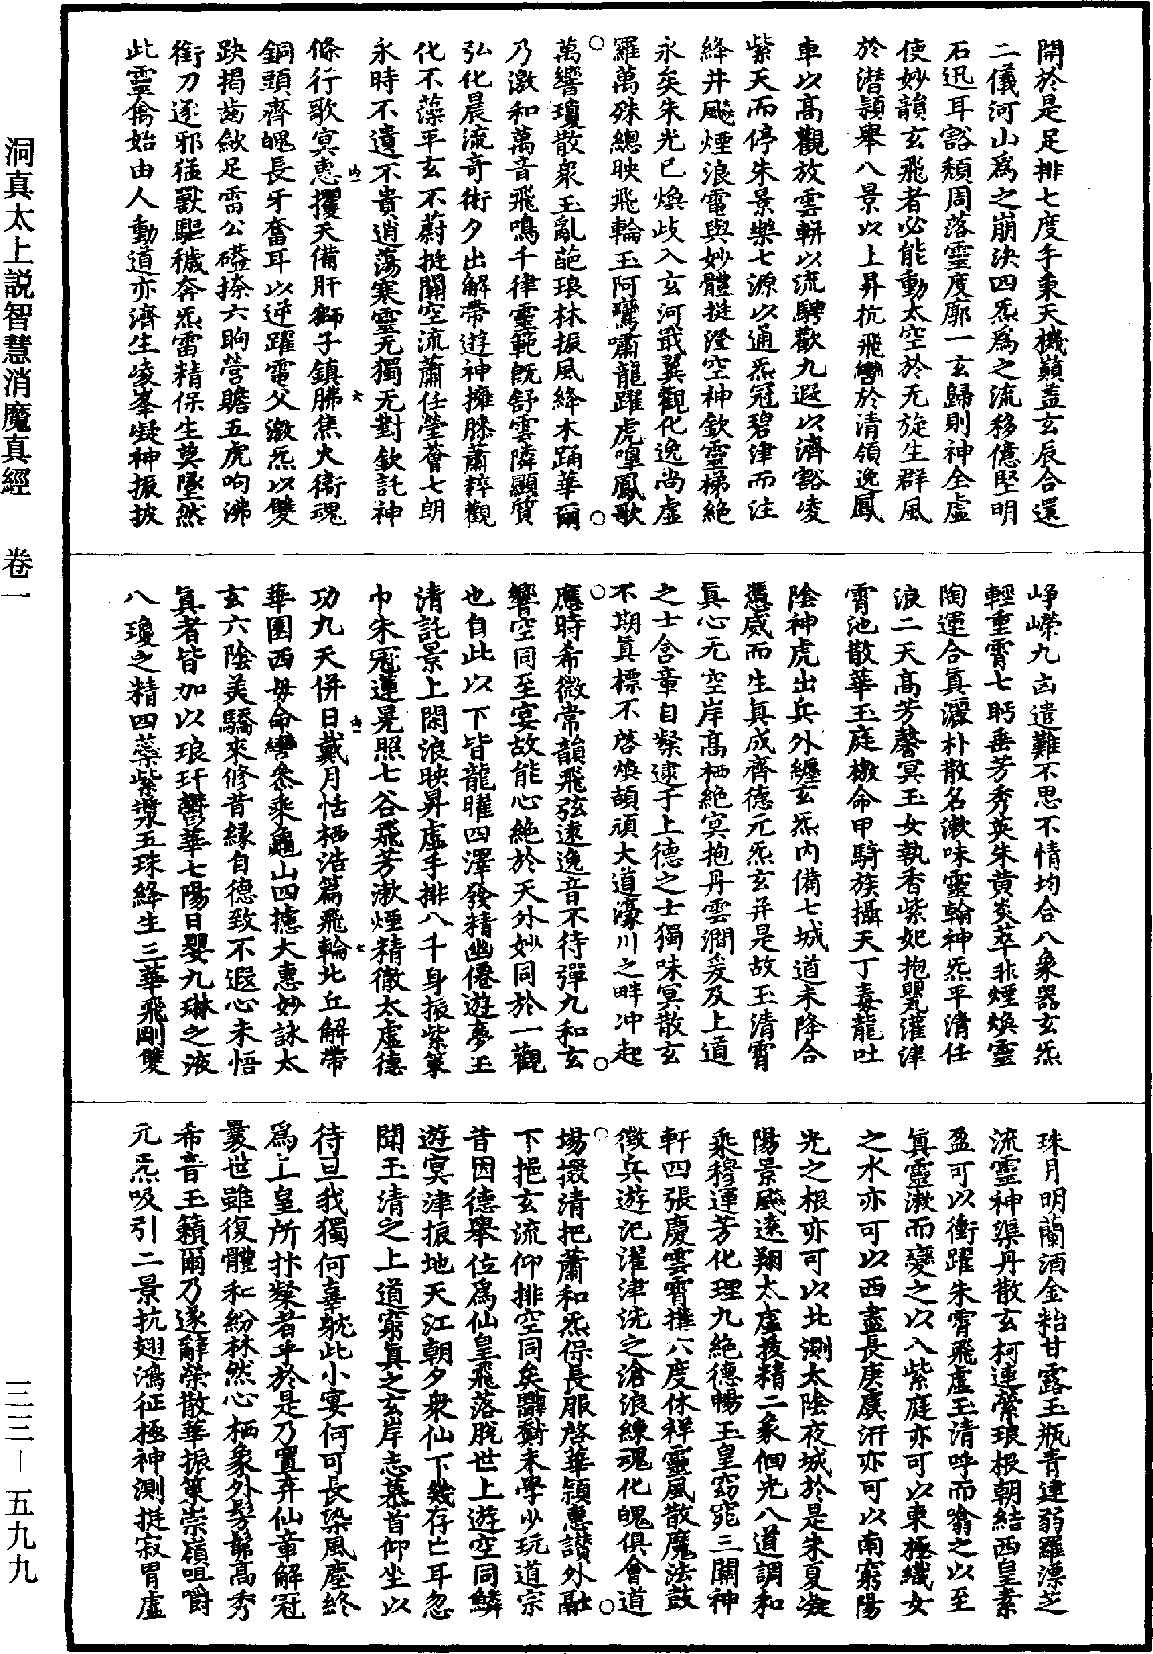 開於是足排七度手秉天機巔蓋玄辰合還
二儀河山為之崩決四炁為之流移億堅明
石迅耳豁頹周落靈度廓一玄歸則神全虛
使妙韻玄飛者必能動太空於无旋生群風
於潜頴舉八景以上昇抗飛轡於清領逸鳳
車以高觀放雲輧以流騁歡九遐以濟豁凌
紫天而停朱景樂七源以通炁冠碧津而注
絳井飈煙浪電與妙體挺澄空神欽靈梯絕
永矣朱光已煥歧入玄河戢翼觀化逸尚虛
羅萬殊總映飛輪玉阿鸞嘯龍躍虎嘷鳳歌
萬響瓊散衆玉亂葩琅林振風絳木踊華爾
乃激和萬音飛鳴千律靈範旣舒雲隣顯質
弘化晨流奇術夕出解帶遊神擁膝蕭粹觀
化不藻平玄不蔚挺關空流蕭任瑩薈七朗
永時不遺不貴逍蕩寒靈无獨无對欽託神
條行歌冥惠攫天備肝獅子鎮胇焦火衛魂
銅頭齊魄長牙奮耳以逆躍電父激炁以雙
趺揭齒斂足雷公磕捺六眴營瞻五虎呴沸
銜刀逐邪猛獸驅穢奔炁雷精保生莫墜然
此靈脩始由人動道亦濟生凌峯凝神振披
崢嶸九卤遣難不思不情均合八象器玄炁
輕重霄七眄垂芳秀英朱黄炎萃非煙煥靈
陶運合真灑朴散名漱味靈翰神炁平清任
浪二天高芳馨冥玉女執香紫妃抱甖灌津
霄池散華玉庭檄命甲騎族攝天丁毒龍吐
陰神虎出兵外纏玄炁内備七城道未降合
憑感而生真成齊德元炁玄并是故玉清霄
真心无空岸高栖絕冥抱丹雲澗爰及上道
之士含章自粲逮于上德之士獨味冥散玄
不期真標不啓煥頡頏大道濠川之畔冲起
應時希微常韻飛弦速逸音不待彈九和玄
響空同至宴故能心絕於天外妙同於一觀
也自此以下皆龍曜四澤發精幽僊遊夢玉
清託景上閑浪映昇虛手排八千身振紫篆
巾朱冠蓮晃照七谷飛芳漱煙精徹太虛德
功九天併日戴月恬栖浩篇飛輪北丘解帶
華圃西母命轡叅乘龜山四摅大惠妙詠太
玄六陰美驕來修昔緣自德致不遐心未悟
真者皆加以琅玕鬱華七陽日嬰九琳之液
八瓊之精四藥紫漿五珠絳生三華飛剛雙
珠月明蘭酒金粘甘露玉瓶青建弱羅漂芝
流靈神渠丹散玄柯連縈琅根朝結西皇素
盈可以衝躍朱霄飛虛玉清呼而噏之以至
真靈漱而變之以入紫庭亦可以東極織女
之水亦可以西盡長庚虞汧亦可以南窮陽
光之根亦可以北測太陰夜城於是朱夏凝
陽景飈逺翔太虛援精二象徊光八道調和
乘穆運芳化理九絕德暢玉皇窈窕三關神
軒四張慶雲霄摪六度休祥靈風散魔法鼓
徵兵遊汜濯津洗之滄浪練魂化魄俱會道
場掇清把蕭和炁保長服啓華頴惠讃外融
下挹玄流仰排空同矣辭對末學少玩道宗
昔因德舉位為仙皇飛落脫世上遊空同鱗
遊冥津振地天江朝夕衆仙下幾存亡耳忽
聞玉清之上道窮真之玄岸志慕首仰坐以
待旦我獨何辜躭此小宴何可長染風塵終
為上皇所抃粲者乎於是乃置弃仙章解冠
曩世雖復體和紛林然心栖象外髣髴高秀
希音玉籟爾乃遂辭榮散華振篆崇嶺咀嚼
元炁吸引二景抗翅鴻征極神測挺寂胃虛
洞真太上説智慧消魔真經　卷一　三三－五九九